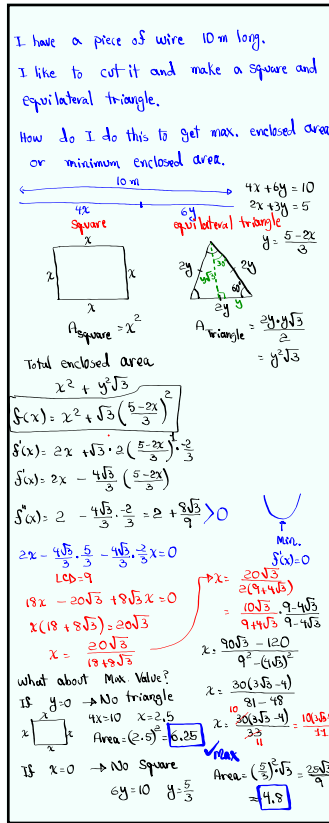 I have a piece of wire 10 m long.
I like to cut it and make a square and
equilateral triangle.
How do I do this to get max. enclosed area
or minimum enclosed area.
10 m
4x 6y
4x + 6y = 10
2x + 3y = 5
y = (5-2x)/3
Square
x
x x
x
A_square = x²
equilateral triangle
30°
2y 2y
y√3
60°
2y y
A_Triangle = (2y·y√3)/2
= y²√3
Total enclosed area
x² + y²√3
f(x) = x² + √3 ((5-2x)/3)²
f'(x) = 2x + √3 · 2((5-2x)/3)¹ · -2/3
f'(x) = 2x - 4√3/3 ((5-2x)/3)
f''(x) = 2 - 4√3/3 · -2/3 = 2 + 8√3/9 > 0
Min.
f'(x) = 0
2x - 4√3/3 · 5/3 - 4√3/3 · -2/3 x = 0
LCD = 9
18x - 20√3 + 8√3 x = 0
x(18 + 8√3) = 20√3
x = 20√3/(18 + 8√3)
x = 20√3/(2(9 + 4√3))
= 10√3/(9 + 4√3) · (9 - 4√3)/(9 - 4√3)
x = (90√3 - 120)/(9² - (4√3)²)
x = 30(3√3 - 4)/(81 - 48)
x = 30(3√3 - 4)/33 = 10(3√3 - 4)/11
10
11
What about Max. Value?
If y=0 → No triangle
x
x x
x
4x=10 x=2.5
Area = (2.5)² = 6.25
Max
If x=0 → No Square
6y=10 y = 5/3
Area = (5/3)² · √3 = 25√3/9
≈ 4.8